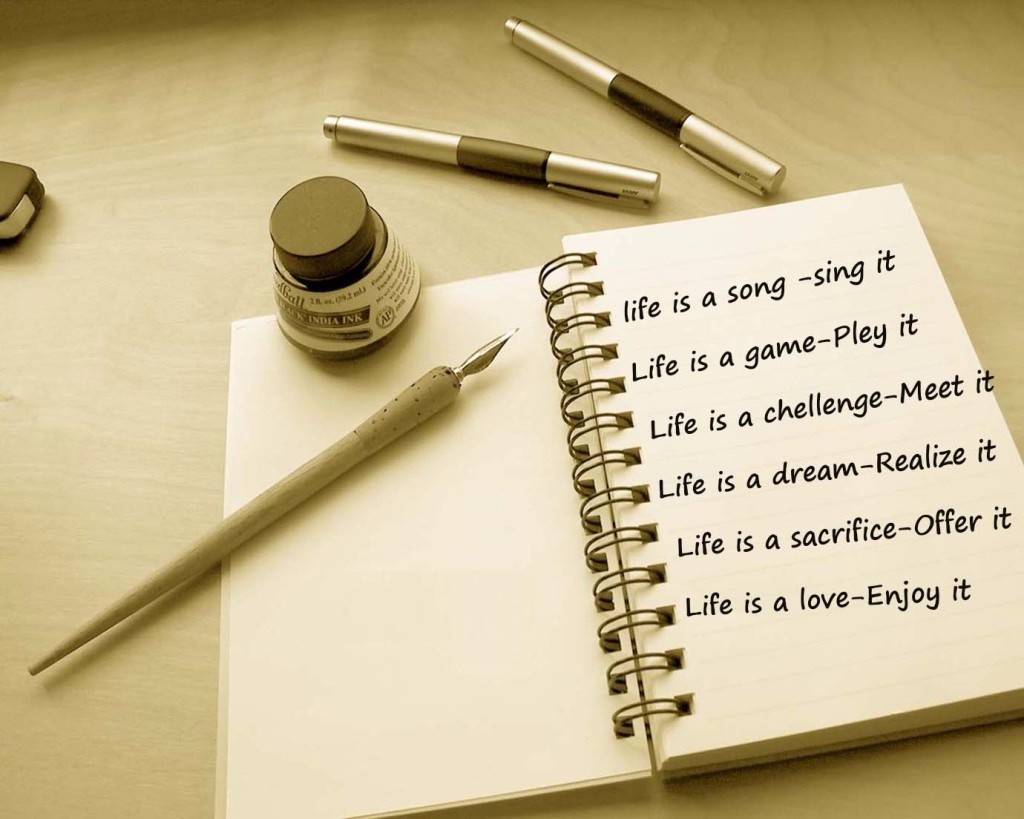 2 fl. oz. (59.2 mL)
INDIA INK
AP
life is a song -sing it
Life is a game-Pley it
Life is a chellenge-Meet it
Life is a dream-Realize it
Life is a sacrifice-Offer it
Life is a love-Enjoy it